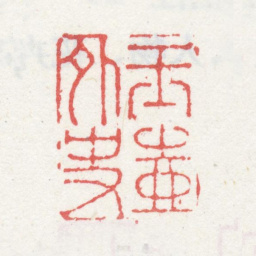 玉壺
外史